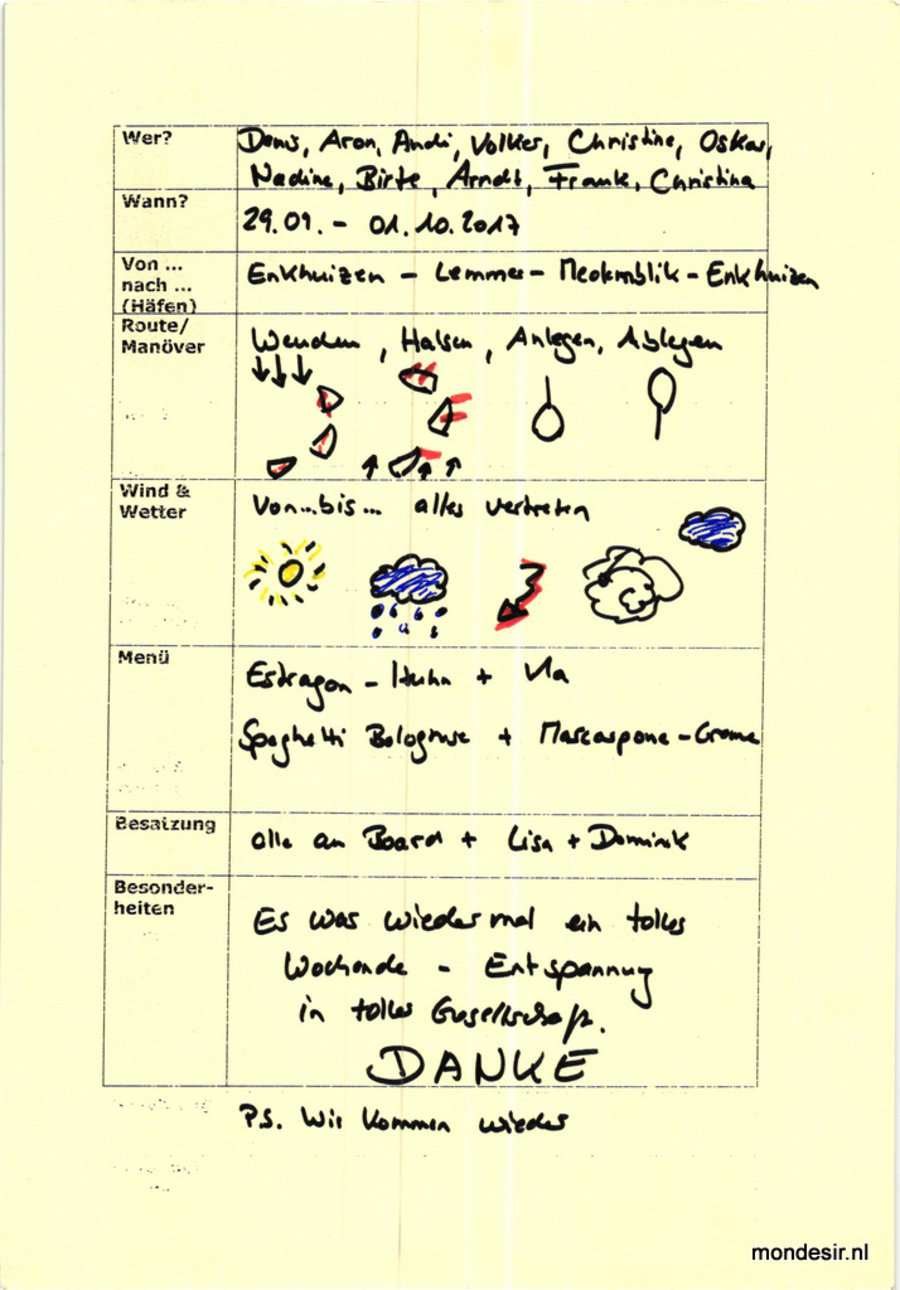 Wer?
Denis, Aron, Andi, Volker, Christine, Oskar,
Nadine, Birte, Arndt, Frank, Christina
Wann?
29.09. - 01.10.2017
Von ...
nach ...
(Häfen)
Enkhuizen - Lemmer - Medemblik - Enkhuizen
Route/
Manöver
Wenden, Halsen, Anlegen, Ablegen
Wind &
Wetter
Von...bis... alles vertreten
Menü
Estragon - Huhn + Vla
Spaghetti Bolognese + Mascarpone-Creme
Besatzung
alle an Board + Lisa + Dominik
Besonder-
heiten
Es war wieder mal ein tolles
Wochende - Entspannung
in toller Gesellschaft.
DANKE
P.S. Wir kommen wieder
mondesir.nl